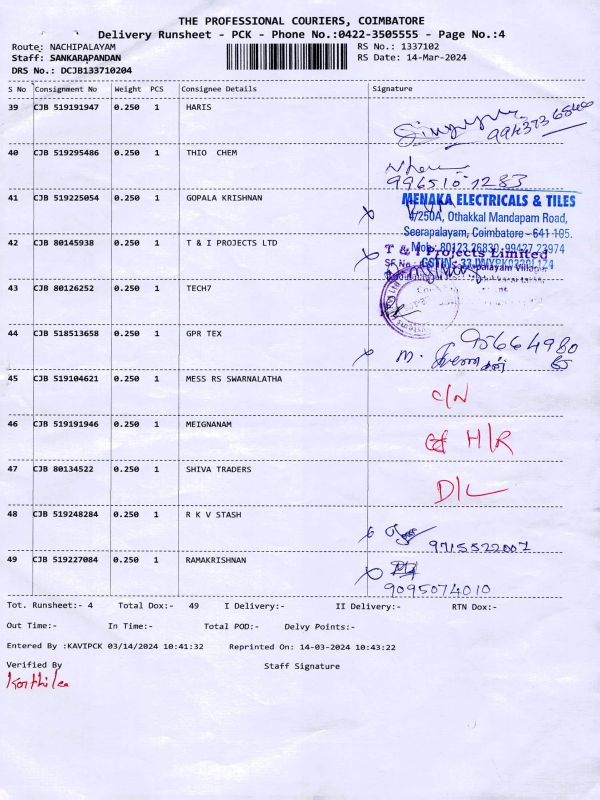 THE PROFESSIONAL COURIERS, COIMBATORE
Delivery Runsheet - PCK - Phone No.:0422-3505555 - Page No.:4
Route: NACHIPALAYAM RS No.: 1337102
Staff: SANKARAPANDAN RS Date: 14-Mar-2024
DRS No.: DCJB133710204
S No Consignment No Weight PCS Consignee Details Signature
39 CJB 519191947 0.250 1 HARIS
40 CJB 519295486 0.250 1 THIO CHEM
41 CJB 519225054 0.250 1 GOPALA KRISHNAN
MENAKA ELECTRICALS & TILES
4/250A, Othakkal Mandapam Road,
Seerapalayam, Coimbatore - 641 105.
42 CJB 80145938 0.250 1 T & I PROJECTS LTD
Mob: 80123 26830, 99427 23974
T & I Projects Limited
43 CJB 80126252 0.250 1 TECH7
44 CJB 518513658 0.250 1 GPR TEX
M.
45 CJB 519104621 0.250 1 MESS RS SWARNALATHA
C/N
46 CJB 519191946 0.250 1 MEIGNANAM
H/R
47 CJB 80134522 0.250 1 SHIVA TRADERS
D/L
48 CJB 519248284 0.250 1 R K V STASH
9715522007
49 CJB 519227084 0.250 1 RAMAKRISHNAN
9095074010
Tot. Runsheet:- 4 Total Dox:- 49 I Delivery:- II Delivery:- RTN Dox:-
Out Time:- In Time:- Total POD:- Delvy Points:-
Entered By :KAVIPCK 03/14/2024 10:41:32 Reprinted On: 14-03-2024 10:43:22
Verified By Staff Signature